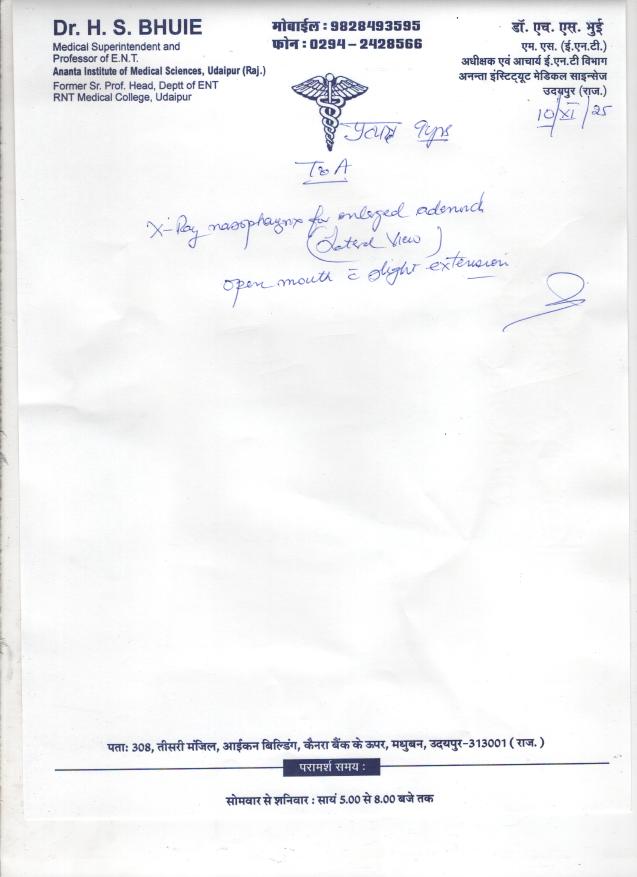 Dr. H. S. BHUIE
Medical Superintendent and
Professor of E.N.T.
Ananta Institute of Medical Sciences, Udaipur (Raj.)
Former Sr. Prof. Head, Deptt of ENT
RNT Medical College, Udaipur
मोबाईल : 9828493595
फोन : 0294 – 2428566
डॉ. एच. एस. भुई
एम. एस. (ई.एन.टी.)
अधीक्षक एवं आचार्य ई.एन.टी विभाग
अनन्ता इंस्टिट्यूट मेडिकल साइन्सेज
उदयपुर (राज.)
10/XI/25
T & A
X-Ray nasopharynx for enlarged adenoids
(Lateral View)
open mouth c̄ slight extension
पताः 308, तीसरी मंजिल, आईकन बिल्डिंग, कैनरा बैंक के ऊपर, मधुबन, उदयपुर-313001 ( राज. )
परामर्श समय :
सोमवार से शनिवार : सायं 5.00 से 8.00 बजे तक